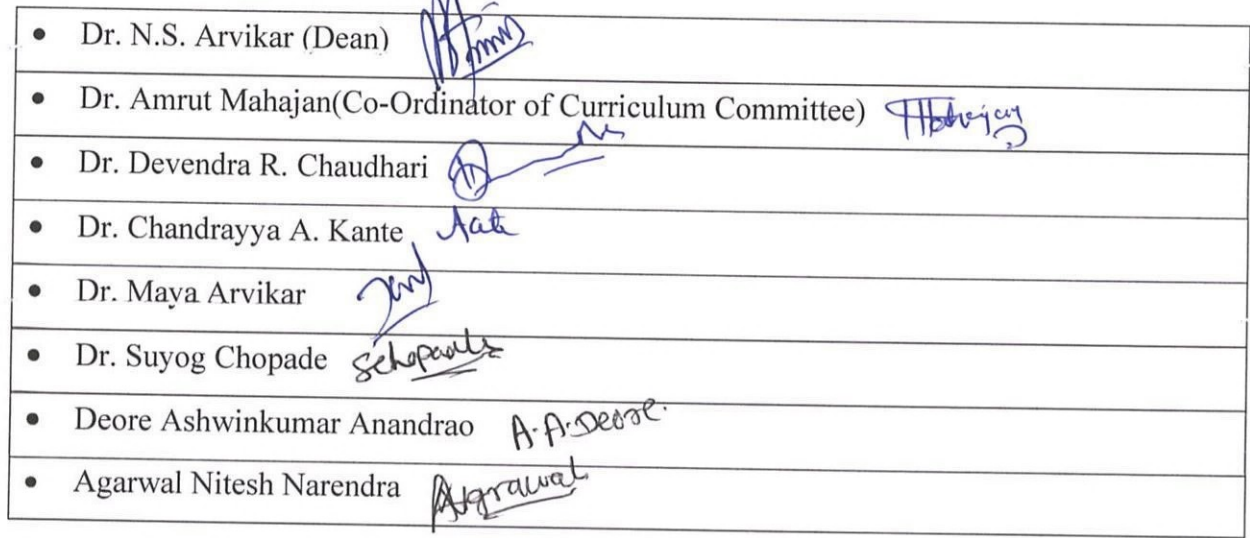 • Dr. N.S. Arvikar (Dean)
• Dr. Amrut Mahajan(Co-Ordinator of Curriculum Committee)
• Dr. Devendra R. Chaudhari
• Dr. Chandrayya A. Kante
• Dr. Maya Arvikar
• Dr. Suyog Chopade
• Deore Ashwinkumar Anandrao A.A.Deore.
• Agarwal Nitesh Narendra Agrawal